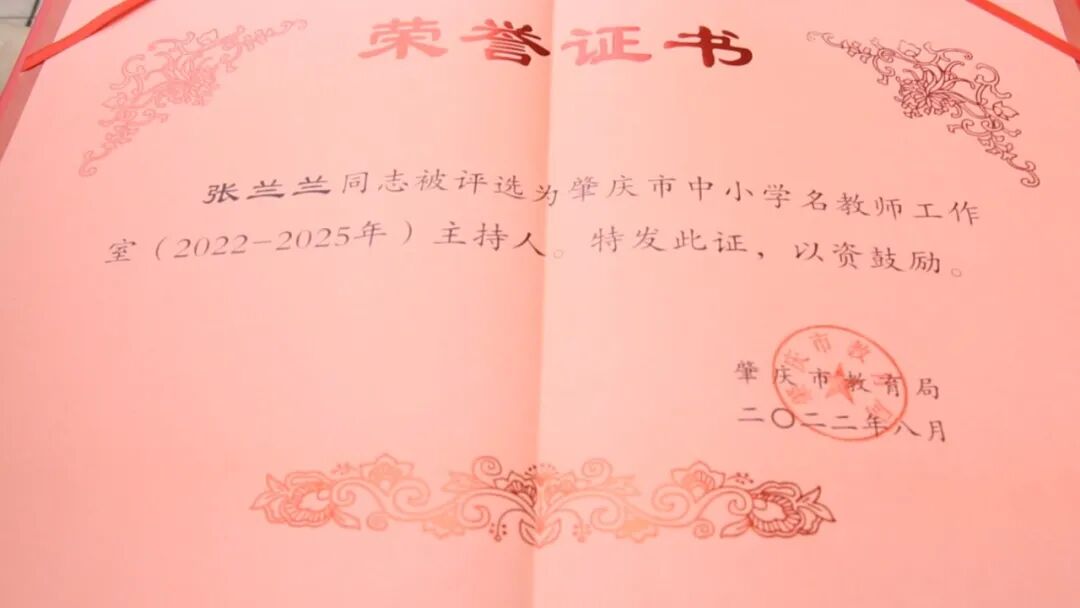 荣誉证书
张兰兰同志被评选为肇庆市中小学名教师工作
室（2022-2025年）主持人。特发此证，以资鼓励。
肇庆市教育局
二〇二二年八月
肇庆市教育局